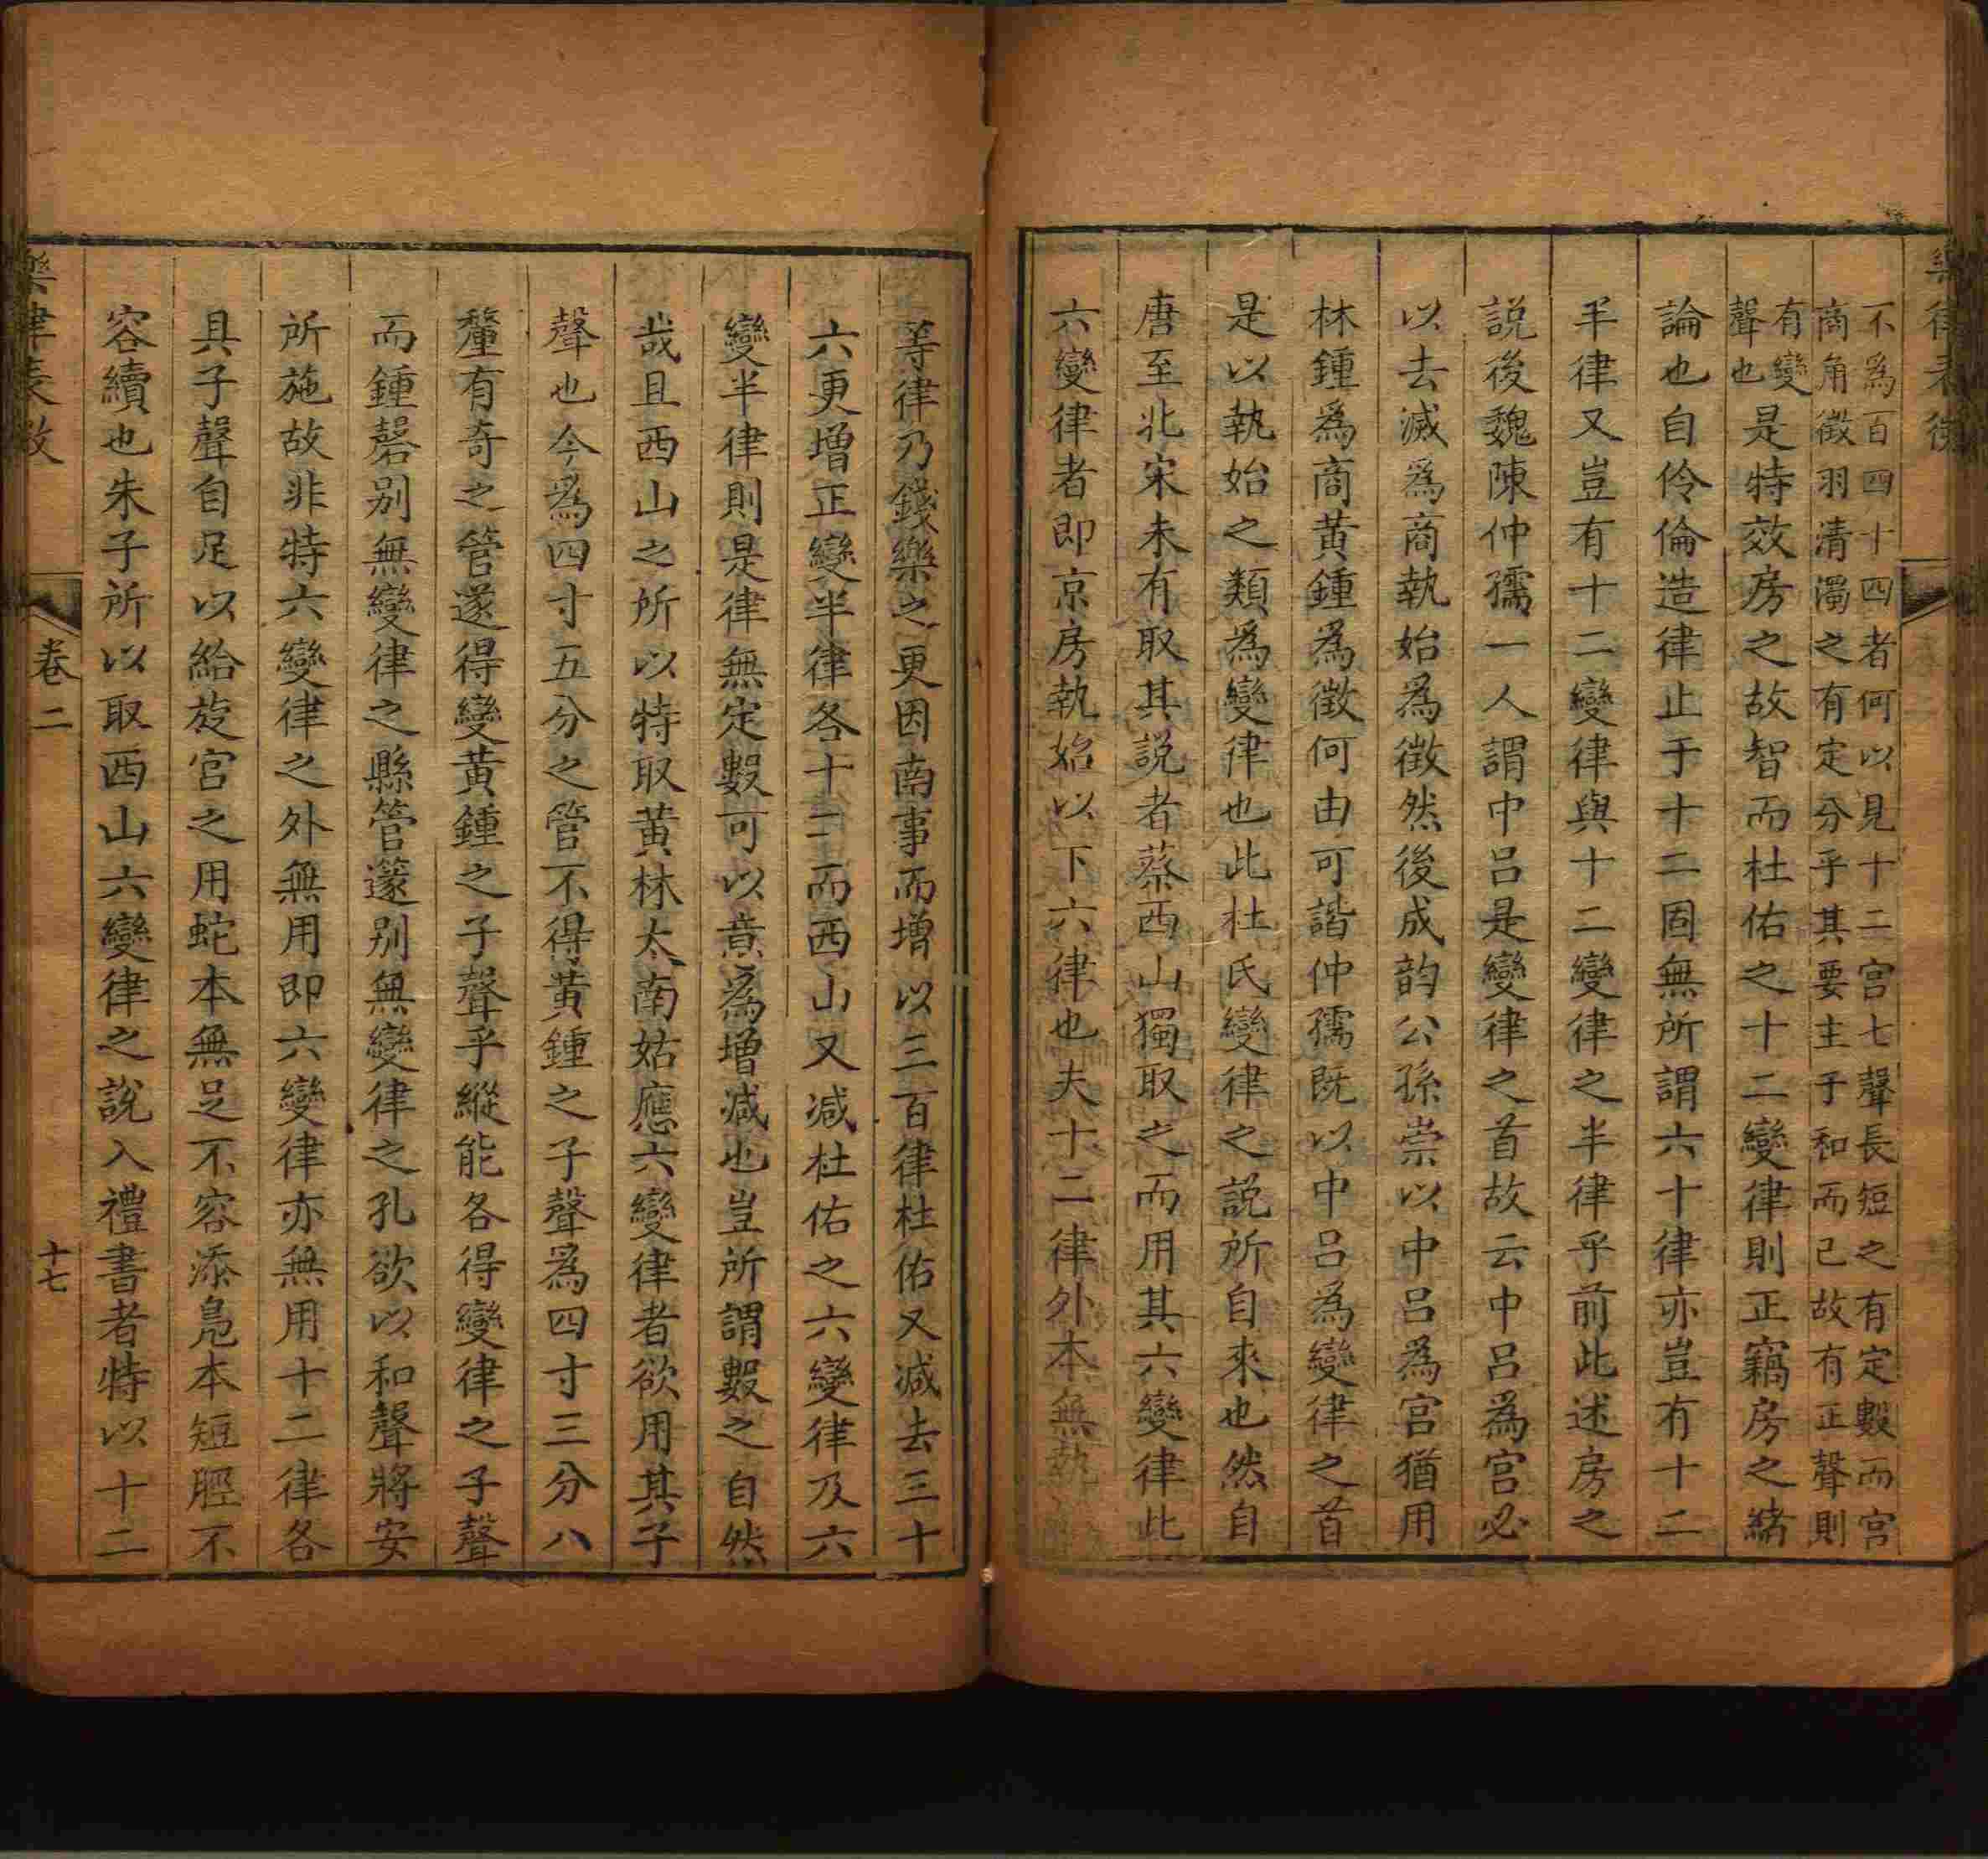 不爲百四十四者何以見十二宫七聲長短之有定數而宫
商角徵羽清濁之有定分乎其要主于和而已故有正聲則
有變
聲也是特效房之故智而杜佑之十二變律則正竊房之緒
論也自伶倫造律止于十二固無所謂六十律亦豈有十二
半律又豈有十二變律與十二變律之半律乎前此述房之
説後魏陳仲孺一人謂中吕是變律之首故云中吕爲宫必
以去滅爲商執始爲徵然後成韵公孫崇以中吕爲宫猶用
林鍾爲商黄鍾爲徵何由可諧仲孺既以中吕爲變律之首
是以執始之類爲變律也此杜氏變律之説所自來也然自
唐至北宋未有取其説者蔡西山獨取之而用其六變律此
六變律者即京房執始以下六律也夫十二律外本無執
等律乃錢樂之更因南事而增以三百律杜佑又减去三十
六更增正變半律各十二而西山又减杜佑之六變律及六
變半律則是律無定數可以意爲增减也豈所謂數之自然
哉且西山之所以特取黄林太南姑應六變律者欲用其子
聲也今爲四寸五分之管不得黄鍾之子聲爲四寸三分八
釐有奇之管遂得變黄鍾之子聲乎縱能各得變律之子聲
而鍾磬别無變律之縣管籧别無變律之孔欲以和聲將安
所施故非特六變律之外無用即六變律亦無用十二律各
具子聲自足以給旋宫之用蛇本無足不容添鳧本短脛不
容續也朱子所以取西山六變律之説入禮書者特以十二
卷二
十七